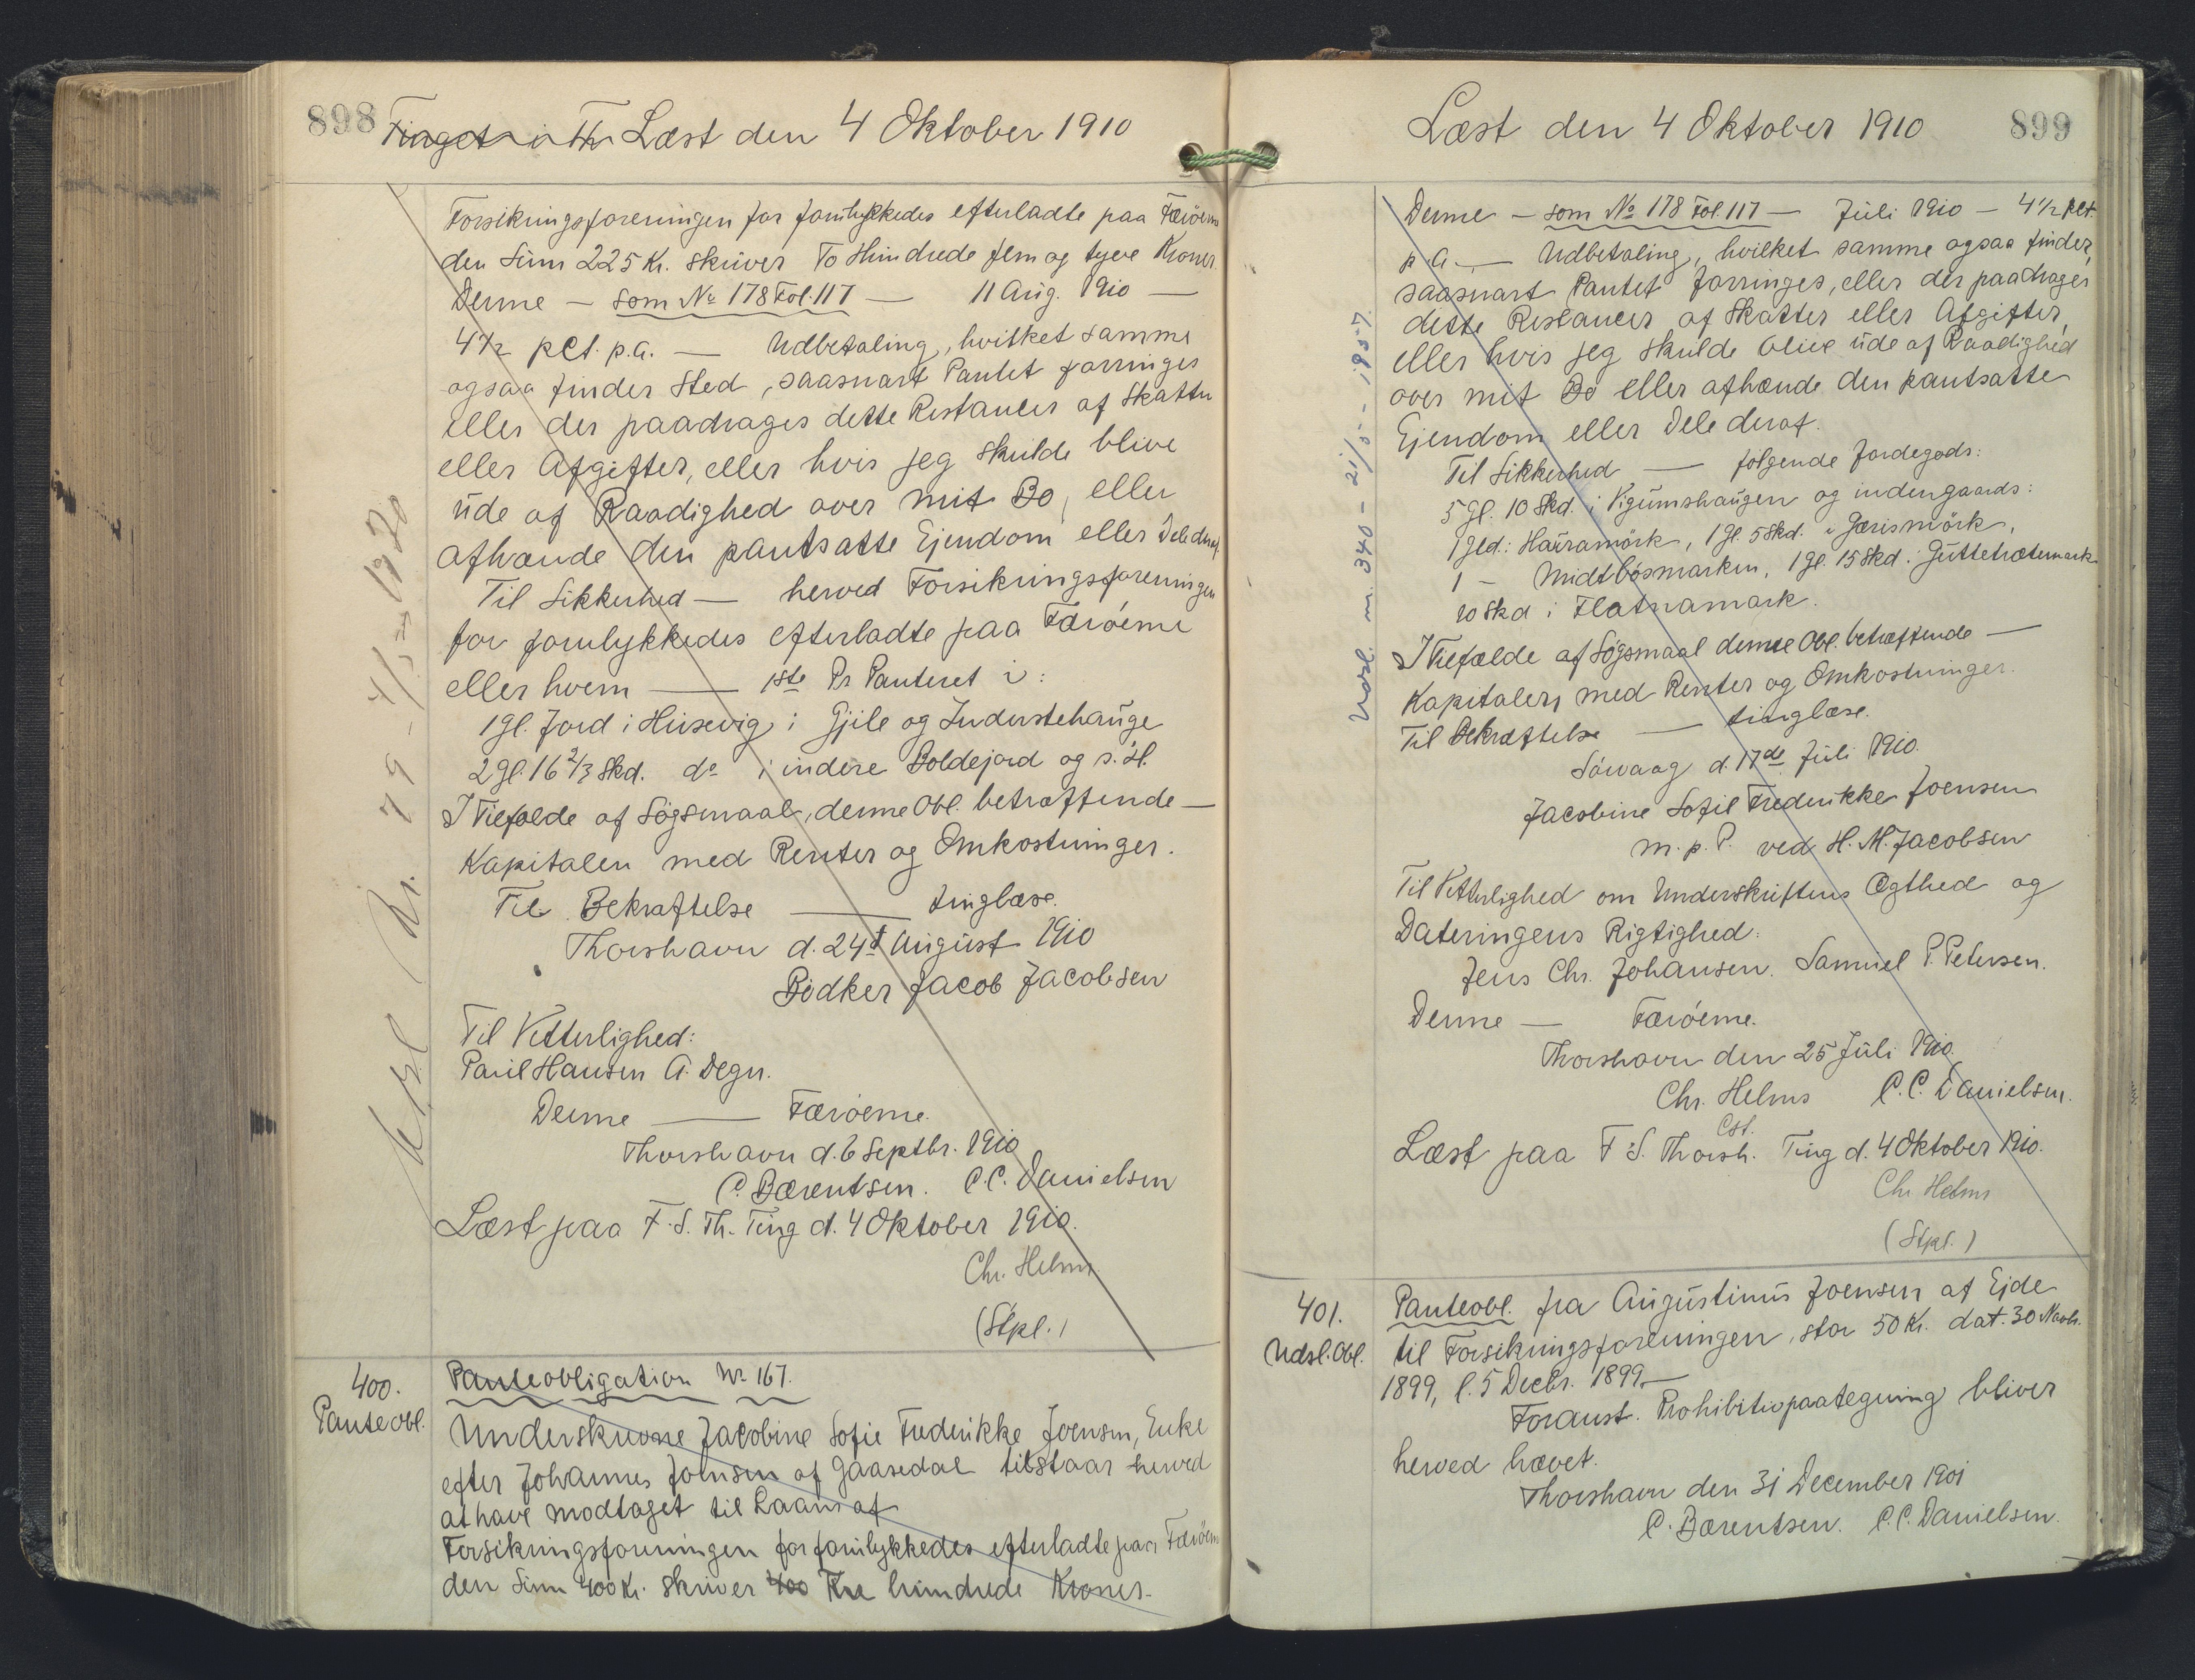 898 Tinget i Th Læst den 4 Oktober 1910
Forsikringsforeningen for forulykkedes efterladte paa Færöerne
den Sum 225 Kr. skriver To Hundrede fem og tyve Kroner
Denne — som No 178 Fol. 117 — 11 Aug. 1910 —
4½ pCt. p.a. — Udbetaling, hvilket samme
ogsaa finder Sted, saasnart Pantet forringes
eller der paadrages dette Restancer af Skatter
eller Afgifter, eller hvis jeg skulde blive
ude af Raadighed over mit Bo, eller
afhænde den pantsatte Ejendom eller Dele deraf.
Til Sikkerhed — herved Forsikringsforeningen
for forulykkedes Efterladte paa Færöerne
eller hvem — 1ste Pr Panteret i:
1 Gl. Jord i Husevig i Gjile og Inderstehauge
2 Gl. 16 2/3 Skd. do i indere Boldejord og s. st.
I Tilfælde af Søgsmaal, denne Obl. betræffende —
Kapitalen med Renter og Omkostninger.
Til Bekræftelse — tinglæse.
Thorshavn d. 24d August 1910
Bødker Jacob Jacobsen
Til Vitterlighed:
Paul Hansen A. Degn.
Denne — Færöerne.
Thorshavn d. 6 Septbr. 1910
C. Bærentsen. C.C. Danielsen
Læst paa F. S. Th. Ting d. 4 Oktober 1910.
Chr. Helms
(Stpl.)
400.
Panteobl.
Panteobligation No 167.
Underskrevne Jacobine Sofie Frederikke Joensen, Enke
efter Johannes Joensen af Gaasedal tilstaar herved
at have modtaget til Laans af
Forsikringsforeningen for forulykkedes efterladte paa Færöerne
den Sum 400 Kr. skriver 400 Fire hundrede Kroner.
Læst den 4 Oktober 1910 899
Denne — som No 178 Fol. 117 — Juli 1910 — 4½ pCt.
p.a. — Udbetaling, hvilket samme ogsaa finder,
saasnart Pantet forringes, eller der paadrages
dette Restancer af Skatter eller Afgifter,
eller hvis jeg skulde blive ude af Raadighed
over mit Bo eller afhænde den pantsatte
Ejendom eller Dele deraf.
Til Sikkerhed — følgende Jordegods:
5 Gl. 10 Skd. i Kgumshaugen og indengaards:
1 Gl. i Hauramörk, 1 Gl. 5 Skd. i Gærismörk,
1 – Midtbösmarken, 1 Gl. 15 Skd. i Guttetrætemark
10 Skd i Flatnamark.
I Tilfælde af Søgsmaal denne Obl. betræffende —
Kapitalen med Renter og Omkostninger.
Til Bekræftelse — tinglæse.
Sörvaag d. 17de Juli 1910.
Jacobine Sofie Frederikke Joensen
m. p. P. ved H. M. Jacobsen
Til Vitterlighed om Underskriftens Ægthed og
Dateringens Rigtighed:
Jens Chr. Johansen. Samuel P. Petersen.
Denne — Færöerne.
Thorshavn den 25 Juli 1910.
Chr. Helms C.C. Danielsen.
Cst.
Læst paa F S. Thorsh. Ting d. 4 Oktober 1910.
Chr Helms
(Stpl.)
Udsl. nr. 340 - 21/5 - 1957.
401.
Udsl. Obl.
Panteobl. fra Augustinus Joensen af Ejde
til Forsikringsforeningen, stor 50 Kr. dat. 30 Novb.
1899, l. 5 Decbr. 1899.—
Foranst. Prohibitivpaategning bliver
herved hævet.
Thorshavn den 31 December 1901
C. Bærentsen. C.C. Danielsen.